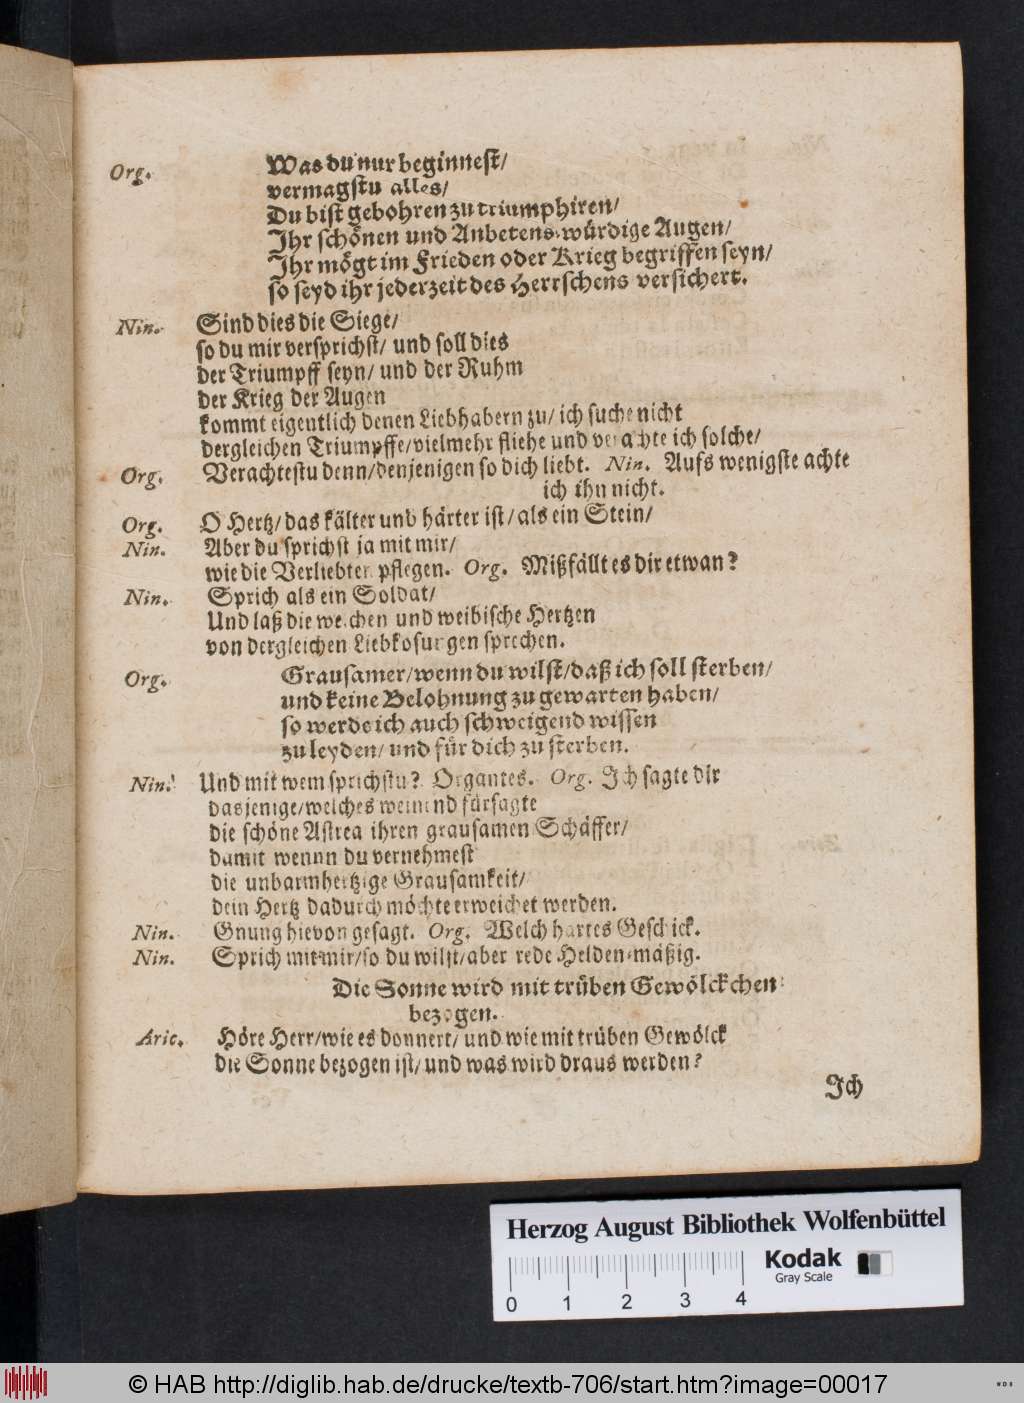 Org. Was du nur beginnest/
vermagstu alles/
Du bist gebohren zu triumphiren/
Ihr schönen und Anbetens-würdige Augen/
Ihr mögt im Frieden oder Krieg begriffen seyn/
so seyd ihr jederzeit des Herrschens versichert.
Nin. Sind dies die Siege/
so du mir versprichst/ und soll dies
der Triumpff seyn/ und der Ruhm
der Krieg der Augen
kommt eigentlich denen Liebhabern zu/ ich suche nicht
dergleichen Triumpffe/ vielmehr fliehe und verachte ich solche/
Org. Verachtestu denn/ denjenigen so dich liebt. Nin. Aufs wenigste achte
ich ihn nicht.
Org. O Hertz/ das kälter und härter ist/ als ein Stein/
Nin. Aber du sprichst ja mit mir/
wie die Verliebten pflegen. Org. Mißfällt es dir etwan?
Nin. Sprich als ein Soldat/
Und laß die weichen und weibische Hertzen
von dergleichen Liebkosungen sprechen.
Org. Grausamer/ wenn du wilst/ daß ich soll sterben/
und keine Belohnung zu gewarten haben/
so werde ich auch schweigend wissen
zu leyden/ und für dich zu sterben.
Nin. Und mit wem sprichstu? Organtes. Org. Ich sagte dir
dasjenige/ welches weinend fürsagte
die schöne Astrea ihren grausamen Schäffer/
damit wennn du vernehmest
die unbarmhertzige Grausamkeit/
dein Hertz dadurch möchte erweichet werden.
Nin. Gnung hievon gesagt. Org. Welch hartes Geschick.
Nin. Sprich mit mir/ so du wilst/ aber rede Helden-mäßig.
Die Sonne wird mit trüben Gewölckchen
bezogen.
Aric. Höre Herr/ wie es donnert/ und wie mit trüben Gewölck
die Sonne bezogen ist/ und was wird draus werden?
Ich
Herzog August Bibliothek Wolfenbüttel
Kodak
Gray Scale
0 1 2 3 4
© HAB http://diglib.hab.de/drucke/textb-706/start.htm?image=00017